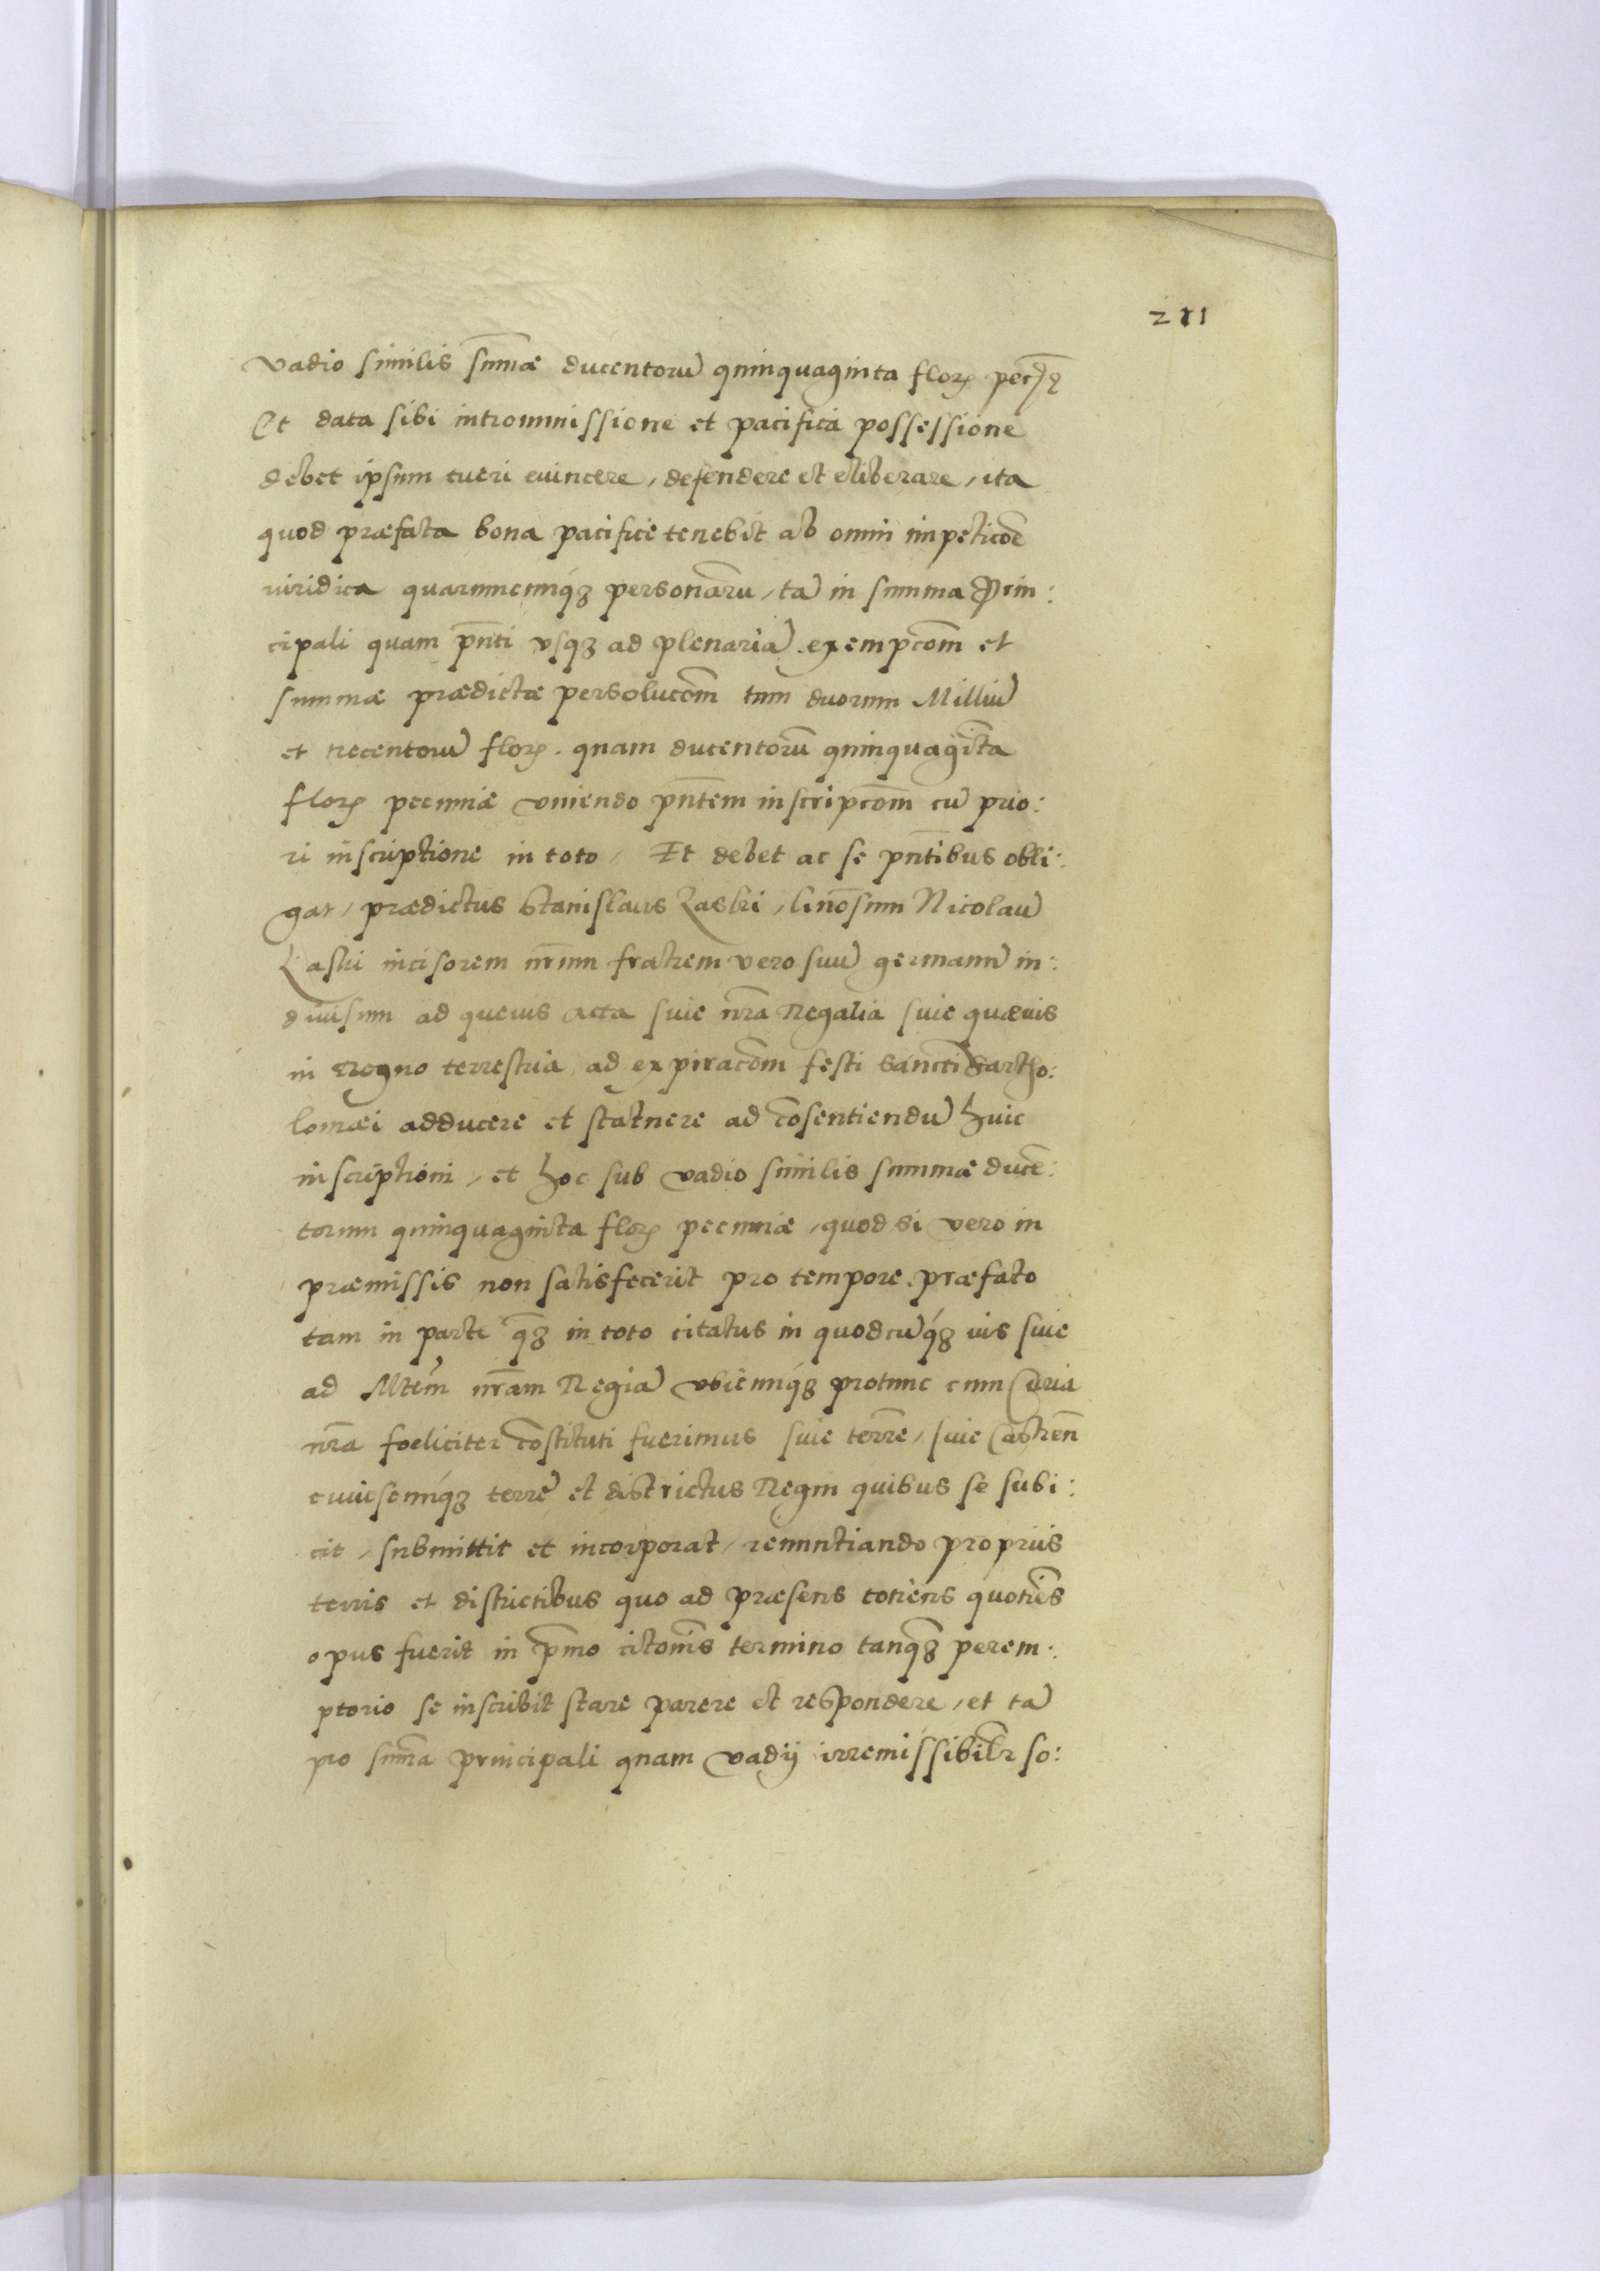 211
vadio similis sum̄æ ducentorū quinquaginta floꝝ
Et data sibi intromissione et pacifica possessione
debet ipsum tueri euincere, defendere et eliberare, ita
quod præfata bona pacifice tenebit ab omni impeticōe
iuridica quarumcunqꝫ personarū, tā in summa Prin:
cipali quam pn̄ti vsqꝫ ad plenariā exempcōm et
summæ prædictæ persolucōm tum duorum Milliū
et trecentorū floꝝ. quam ducentorū quinquaginta
floꝝ pecuniæ vniendo pn̄tem inscripcōm cū prio:
ri inscriptione in toto, Et debet ac se pn̄tibus obli:
gat, prædictus Stanislaus Laski, Nicolaū
Laski incisorem nr̄um fratrem vero suū germanū in:
diuisum ad queuis acta siue nr̄a Regalia siue quæuis
in Regno terrestria ad expiracōm festi sancti Bartho:
lomæi adducere et statuere ad cōsentiendū huic
inscriptioni, et hoc sub vadio similis summæ ducē:
torum quinquaginta floꝝ pecuniæ, quod si vero in
præmissis non satisfecerit pro tempore præfato
tam in parte qꝫ in toto citatus in quodcūqꝫ ius siue
ad Mtem̄ nr̄am Regiā vbicunqꝫ protunc cum Curia
nr̄a foeliciter cōstituti fuerimus siue terrē, siue Castren̄
cuiuscunqꝫ terrē et districtus Regni quibus se subi:
cit, submittit et incorporat, renuntiando proprijs
terris et districtibus quo ad præsens totiens quotiēs
opus fuerit in pm̄o citōnis termino tanqꝫ perem:
ptorio se inscribit stare parere et respondere, et tā
pro sum̄a principali quam vadij irremissibilr̄ so: